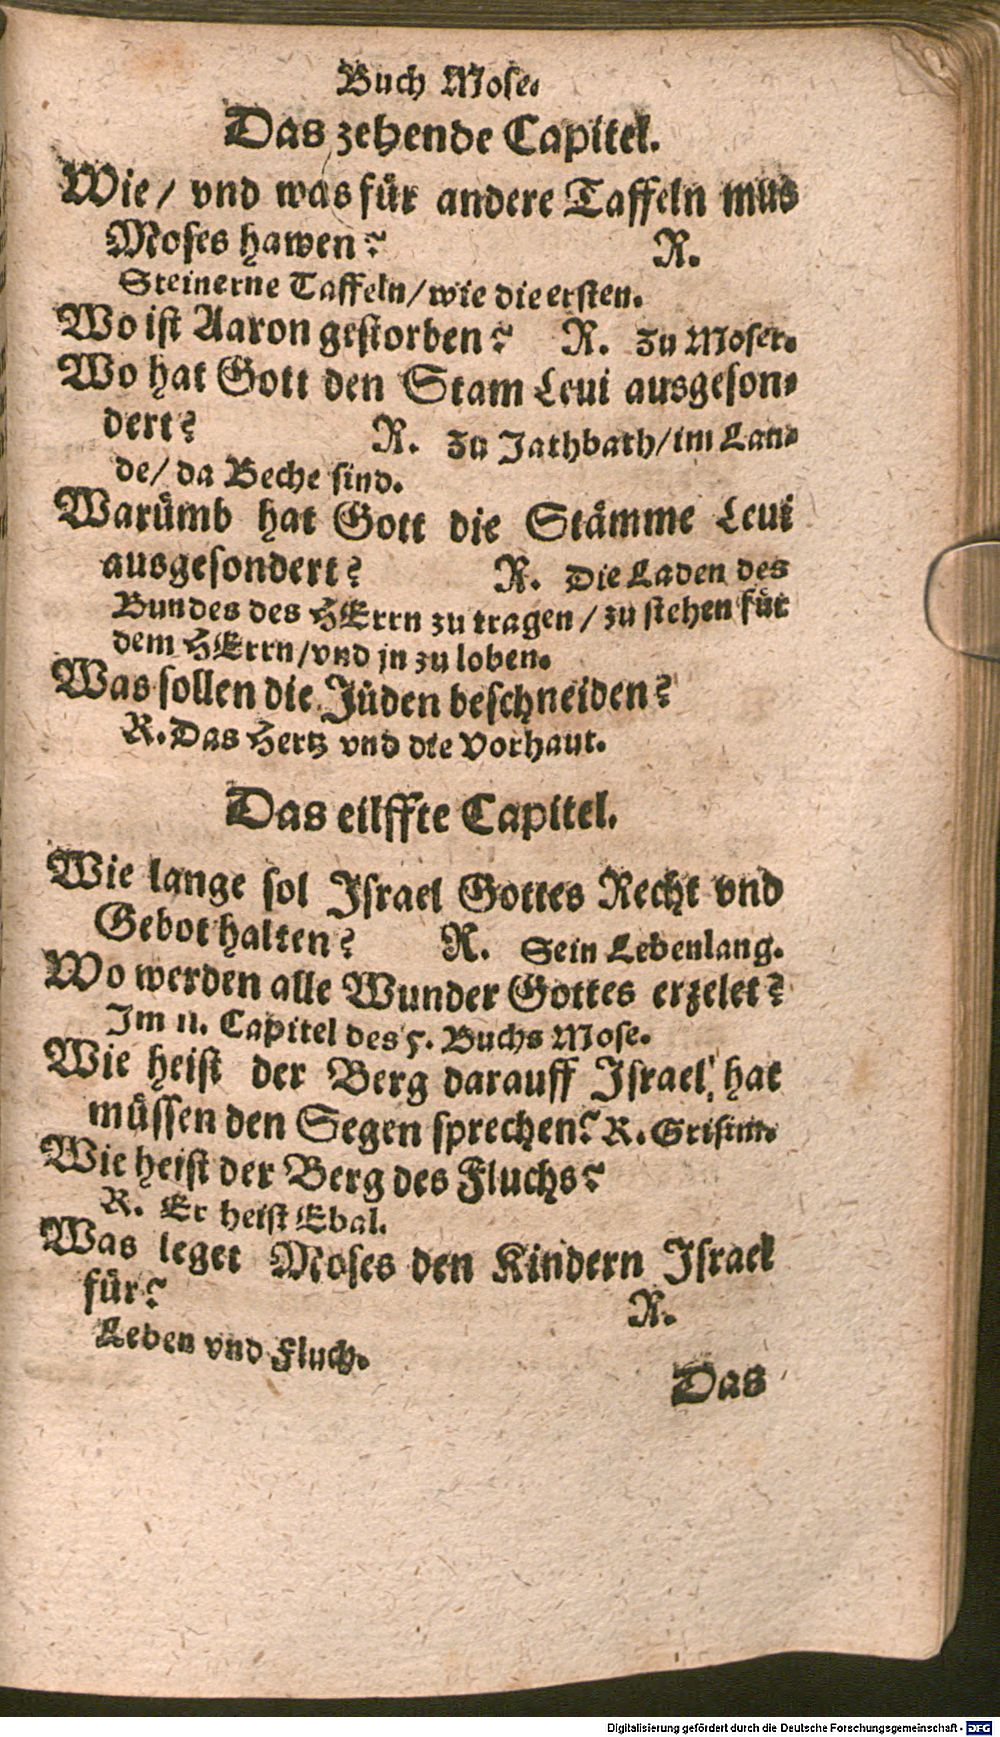 Buch Mose.
Das zehende Capitel.
Wie/ vnd was für andere Taffeln mus
Moses hawen? R.
Steinerne Taffeln/wie die ersten.
Wo ist Aaron gestorben? R. Zu Moser.
Wo hat Gott den Stam Leui ausgeson-
dert? R. Zu Jathbath/im Lan-
de/ da Beche sind.
Warümb hat Gott die Stämme Leui
ausgesondert? R. Die Laden des
Bundes des HErrn zu tragen/ zu stehen für
dem HErrn/vnd jn zu loben.
Was sollen die Jüden beschneiden?
R. Das Hertz vnd die Vorhaut.
Das eilffte Capitel.
Wie lange sol Israel Gottes Recht vnd
Gebot halten? R. Sein Lebenlang.
Wo werden alle Wunder Gottes erzelet?
Im 11. Capitel des 5. Buchs Mose.
Wie heist der Berg darauff Israel hat
müssen den Segen sprechen? R. Grisim.
Wie heist der Berg des Fluchs?
R. Er heist Ebal.
Was leget Moses den Kindern Israel
für? R.
Leben vnd Fluch.
Das
Digitalisierung gefördert durch die Deutsche Forschungsgemeinschaft - DFG